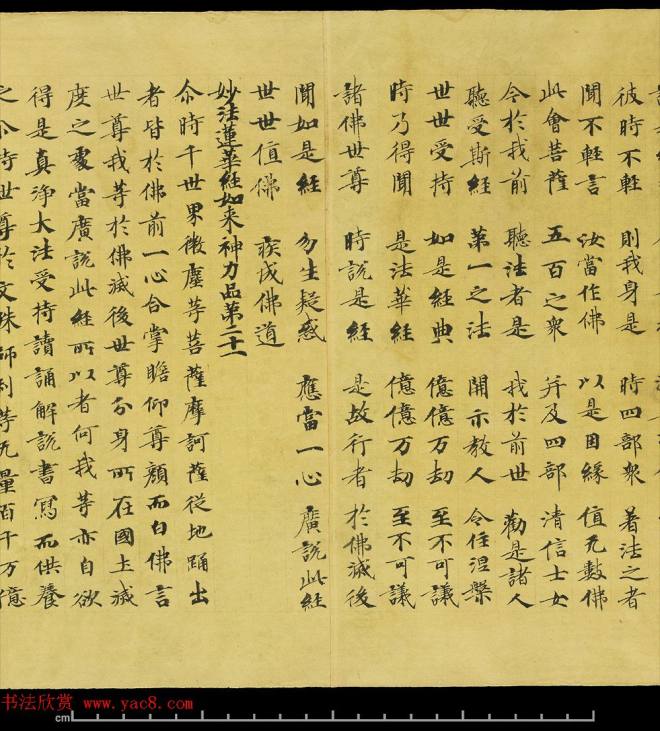 彼時不輕 則我身是 時四部衆 著法之者
聞不輕言 汝當作佛 以是因緣 值无數佛
此會菩薩 五百之衆 并及四部 清信士女
今於我前 聽法者是 我於前世 勸是諸人
聽受斯經 第一之法 開示教人 令住涅槃
世世受持 如是經典 億億万劫 至不可議
時乃得聞 是法華經 億億万劫 至不可議
諸佛世尊 時說是經 是故行者 於佛滅後
聞如是經 勿生疑惑 應當一心 廣說此經
世世值佛 疾成佛道
妙法蓮華經如来神力品第二十一
尒時千世界微塵等菩薩摩訶薩從地踊出
者皆於佛前一心合掌瞻仰尊顏而白佛言
世尊我等於佛滅後世尊分身所在國土滅
度之處當廣說此經所以者何我等亦自欲
得是真淨大法受持讀誦解說書寫而供養
之尒時世尊於文殊師利等无量百千万億
书法欣赏 www.yac8.com
cm